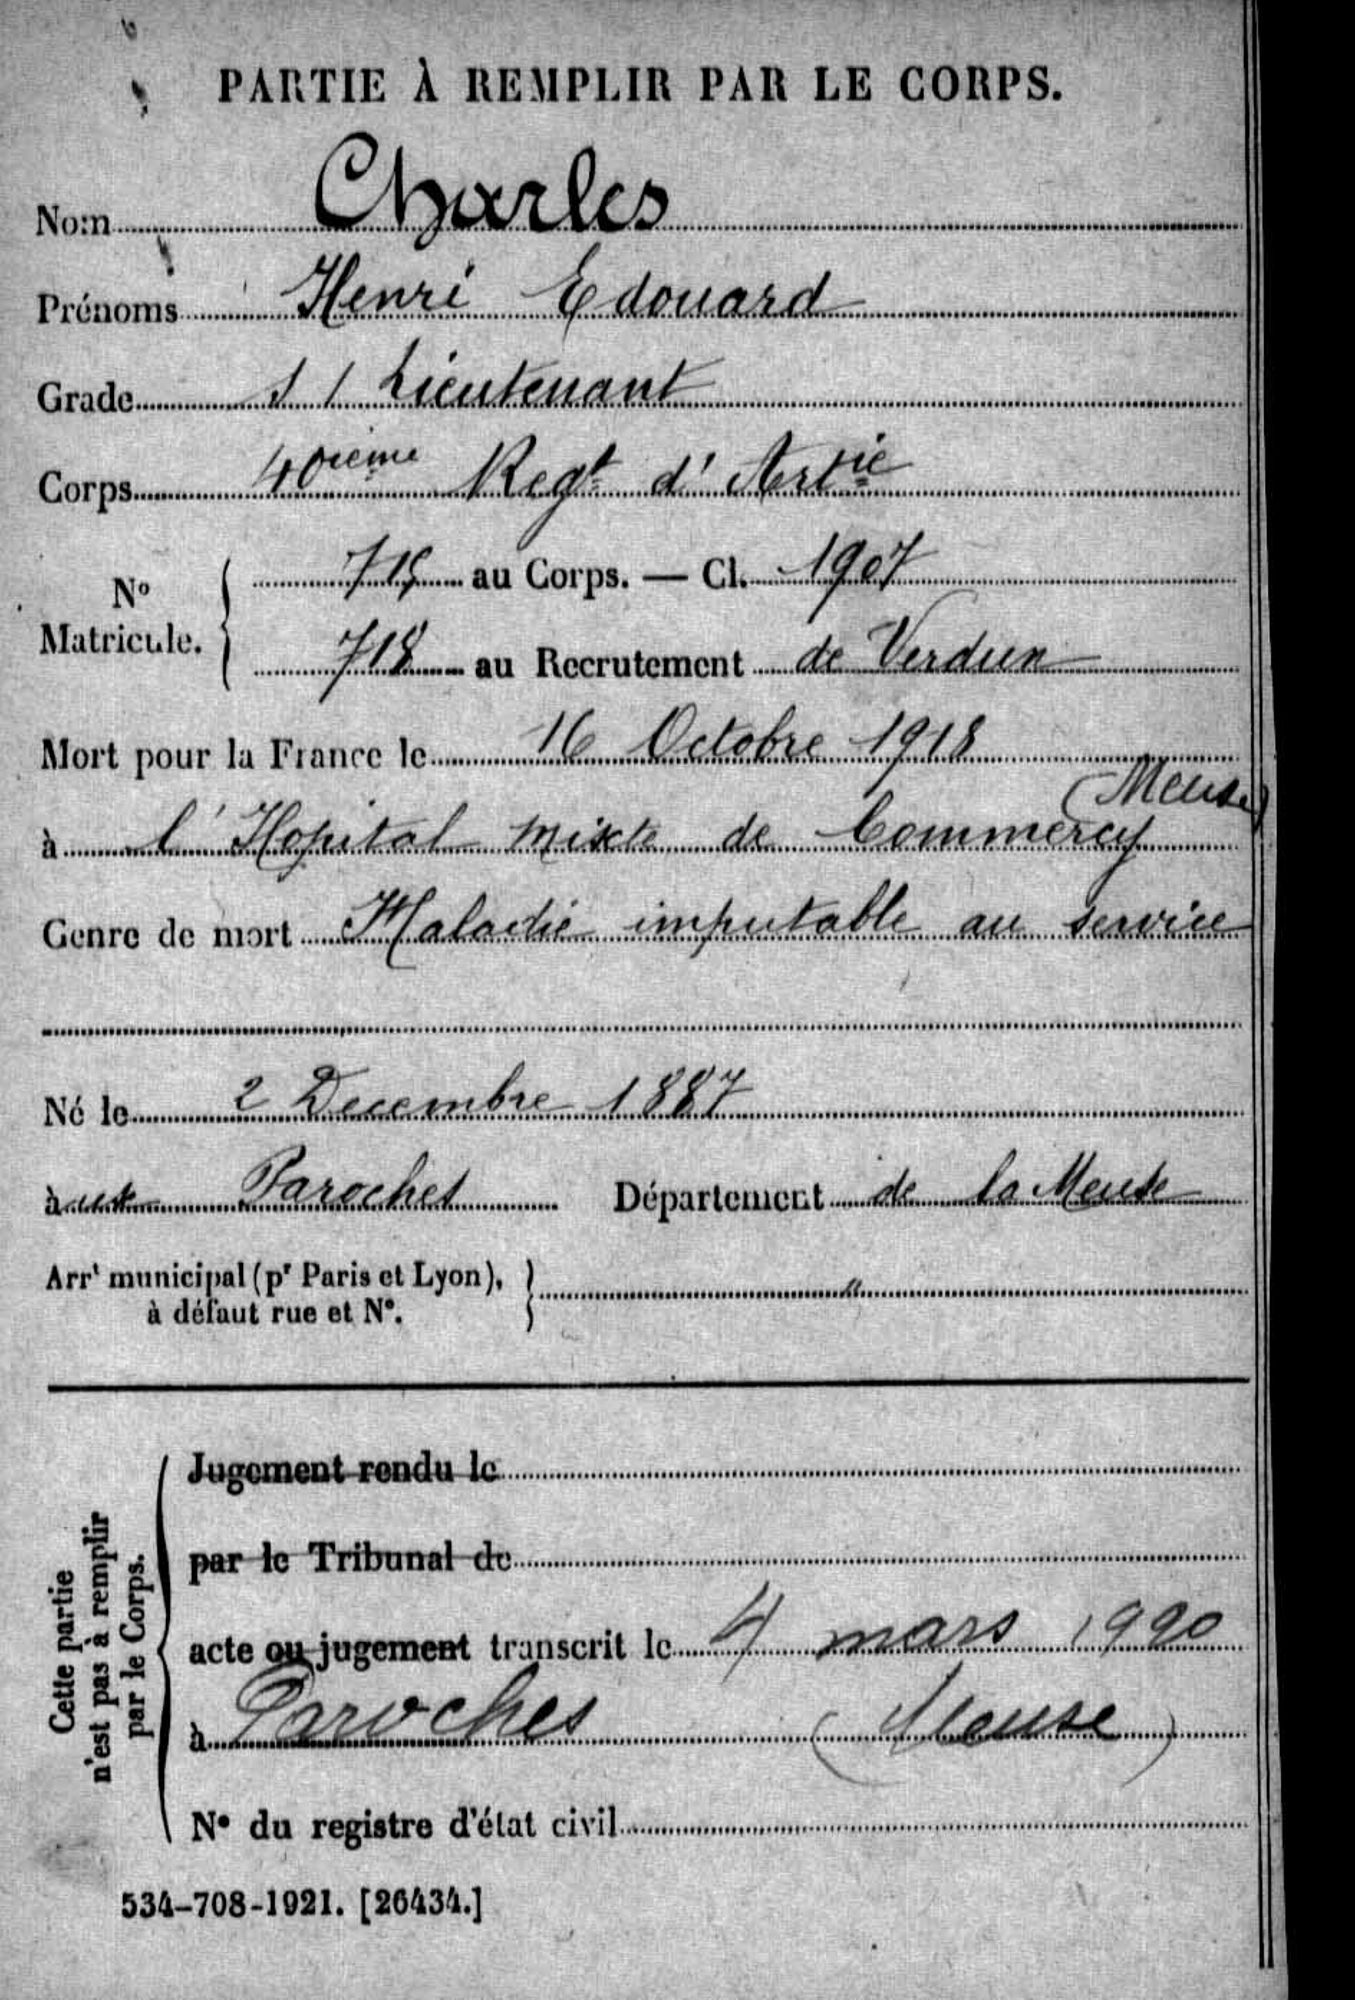 PARTIE À REMPLIR PAR LE CORPS.
Nom Charles
Prénoms Henri Edouard
Grade S/Lieutenant
Corps 40ième Regt d'Artie
No Matricule. 715 au Corps. — Cl. 1907
718 au Recrutement de Verdun
Mort pour la France le 16 Octobre 1918
à l'Hopital mixte de Commercy (Meuse)
Genre de mort Maladie imputable au service
Né le 2 Decembre 1887
à aux Paroches Département de la Meuse
Arrt municipal (pr Paris et Lyon),
à défaut rue et N°. "
Cette partie
n'est pas à remplir
par le Corps.
Jugement rendu le
par le Tribunal de
acte ou jugement transcrit le 4 mars 1920
à Paroches (Meuse)
N° du registre d'état civil
534-708-1921. [26434.]